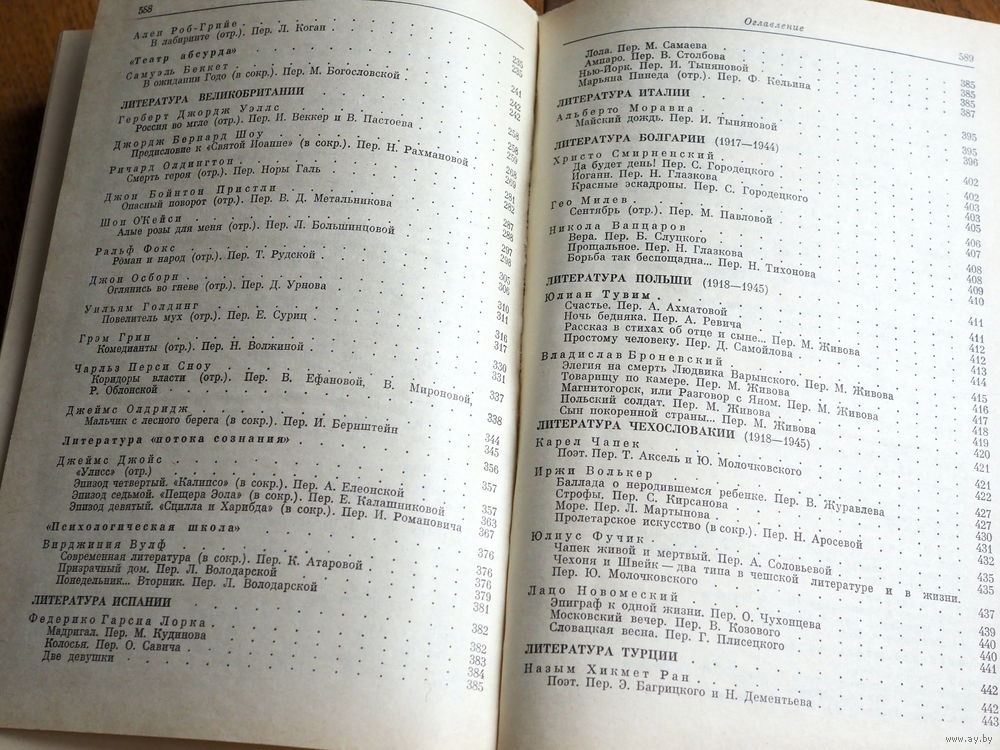 588
Ален Роб-Грийе 235
В лабиринте (отр.). Пер. Л. Коган 235
«Театр абсурда» 241
Самуэль Беккет 242
В ожидании Годо (в сокр.). Пер. М. Богословской 242
ЛИТЕРАТУРА ВЕЛИКОБРИТАНИИ 258
Герберт Джордж Уэллс 258
Россия во мгле (отр.). Пер. И. Веккер и В. Пастоева 259
Джордж Бернард Шоу 268
Предисловие к «Святой Иоанне» (в сокр.). Пер. Н. Рахмановой 269
Ричард Олдингтон 281
Смерть героя (отр.). Пер. Норы Галь 282
Джон Бойнтон Пристли 287
Опасный поворот (отр.). Пер. В. Д. Метальникова 288
Шон О'Кейси 297
Алые розы для меня (отр.). Пер. Л. Большинцовой 298
Ральф Фокс 305
Роман и народ (отр.). Пер. Т. Рудской 306
Джон Осборн 310
Оглянись во гневе (отр.). Пер. Д. Урнова 311
Уильям Голдинг 316
Повелитель мух (отр.). Пер. Е. Суриц 317
Грэм Грин 330
Комедианты (отр.). Пер. Н. Волжиной 331
Чарльз Перси Сноу 337
Коридоры власти (отр.). Пер. В. Ефановой, В. Мироновой,
Р. Облонской 338
Джеймс Олдридж 344
Мальчик с лесного берега (в сокр.). Пер. И. Бернштейн 345
Литература «потока сознания» 356
Джеймс Джойс 357
«Улисс» (отр.)
Эпизод четвертый. «Калипсо» (в сокр.). Пер. А. Елеонской 357
Эпизод седьмой. «Пещера Эола» (в сокр.). Пер. Е. Калашниковой 363
Эпизод девятый. «Сцилла и Харибда» (в сокр.). Пер. И. Романовича 367
«Психологическая школа» 376
Вирджиния Вулф 376
Современная литература (в сокр.). Пер. К. Атаровой 376
Призрачный дом. Пер. Л. Володарской 379
Понедельник... Вторник. Пер. Л. Володарской 381
ЛИТЕРАТУРА ИСПАНИИ 382
Федерико Гарсиа Лорка 382
Мадригал. Пер. М. Кудинова 383
Колосья. Пер. О. Савича 384
Две девушки 385
Оглавление 589
Лола. Пер. М. Самаева 385
Ампаро. Пер. В. Столбова 385
Нью-Йорк. Пер. И. Тыняновой 385
Марьяна Пинеда (отр.). Пер. Ф. Кельина 387
ЛИТЕРАТУРА ИТАЛИИ 395
Альберто Моравиа 395
Майский дождь. Пер. И. Тыняновой 396
ЛИТЕРАТУРА БОЛГАРИИ (1917—1944) 402
Христо Смирненский 402
Да будет день! Пер. С. Городецкого 403
Йоганн. Пер. Н. Глазкова 403
Красные эскадроны. Пер. С. Городецкого 405
Гео Милев 406
Сентябрь (отр.). Пер. М. Павловой 407
Никола Вапцаров 408
Вера. Пер. Б. Слуцкого 408
Прощальное. Пер. Н. Глазкова 409
Борьба так беспощадна... Пер. Н. Тихонова 410
ЛИТЕРАТУРА ПОЛЬШИ (1918—1945) 411
Юлиан Тувим 411
Счастье. Пер. А. Ахматовой 412
Ночь бедняка. Пер. А. Ревича 412
Рассказ в стихах об отце и сыне... Пер. М. Живова 413
Простому человеку. Пер. Д. Самойлова 414
Владислав Броневский 415
Элегия на смерть Людвика Варынского. Пер. М. Живова 416
Товарищу по камере. Пер. М. Живова 417
Магнитогорск, или Разговор с Яном. Пер. М. Живова 418
Польский солдат. Пер. М. Живова 419
Сын покоренной страны... Пер. М. Живова 420
ЛИТЕРАТУРА ЧЕХОСЛОВАКИИ (1918—1945) 421
Карел Чапек 421
Поэт. Пер. Т. Аксель и Ю. Молочковского 422
Иржи Волькер 427
Баллада о неродившемся ребенке. Пер. В. Журавлева 427
Строфы. Пер. С. Кирсанова 430
Море. Пер. Л. Мартынова 431
Пролетарское искусство (в сокр.). Пер. Н. Аросевой 432
Юлиус Фучик 435
Чапек живой и мертвый. Пер. А. Соловьевой 435
Чехоня и Швейк — два типа в чешской литературе и в жизни.
Пер. Ю. Молочковского 437
Лацо Новомеский 439
Эпиграф к одной жизни. Пер. О. Чухонцева 440
Московский вечер. Пер. В. Козового 440
Словацкая весна. Пер. Г. Плисецкого 441
ЛИТЕРАТУРА ТУРЦИИ 442
Назым Хикмет Ран 442
Поэт. Пер. Э. Багрицкого и Н. Дементьева 443
www.ay.by